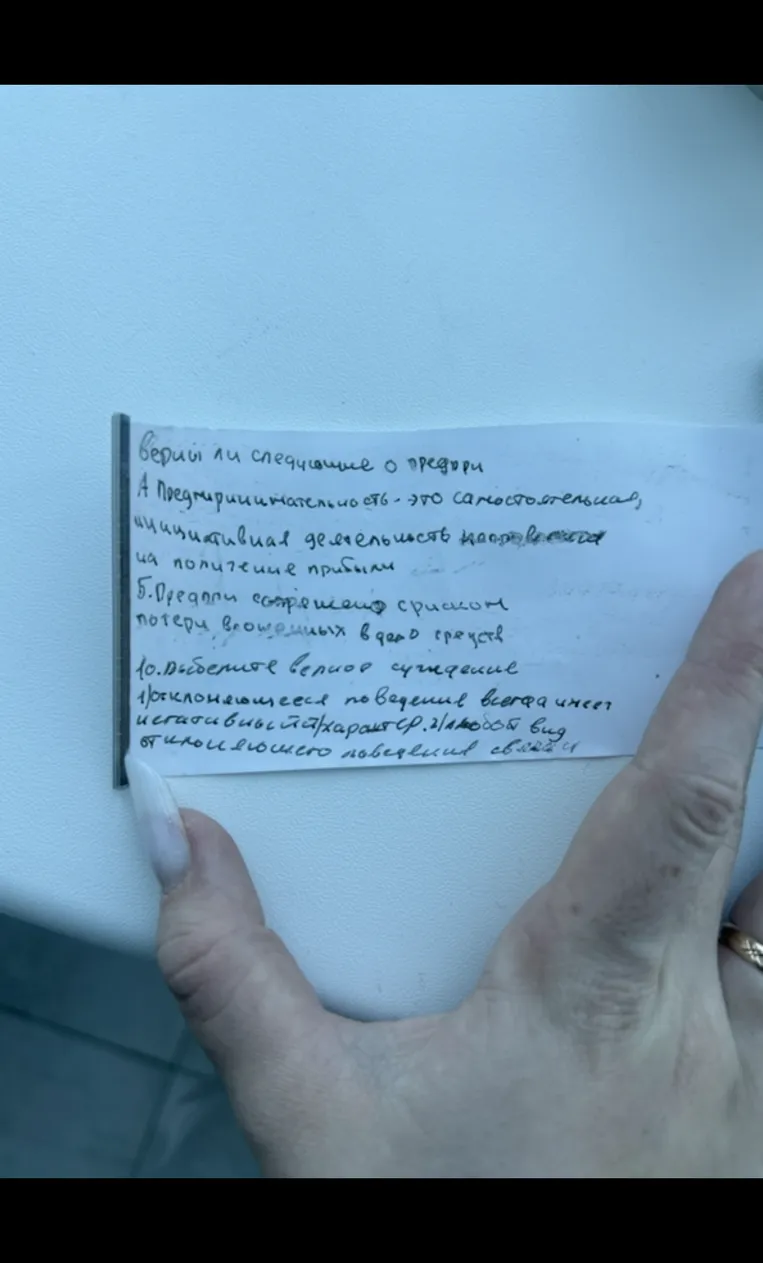 Верны ли следующие о предпри
А Предпринимательность - это самостоятельная,
инициативная деятельность
на получение прибыли
Б. Предпри сопряжено с риском
потери вложенных в дело средств
10. Выберите верное суждение
1) отклоняющееся поведение всегда имеет
негативный характер. 2) любой вид
отклоняющего поведения связан